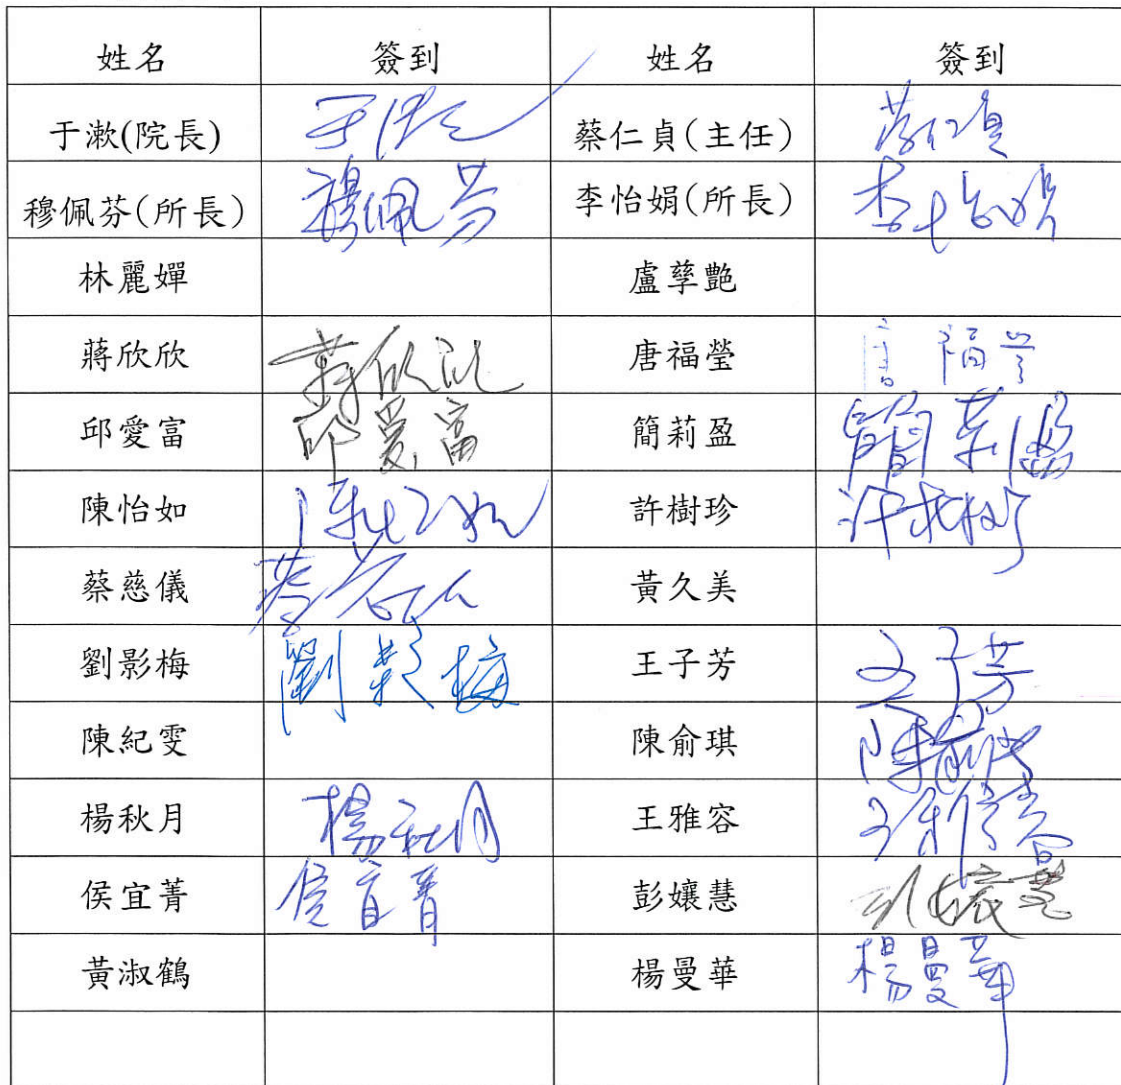 姓名 簽到 姓名 簽到
于漱(院長) 于漱 蔡仁貞(主任) 蔡仁貞
穆佩芬(所長) 穆佩芬 李怡娟(所長) 李怡娟
林麗嬋 盧孳艷
蔣欣欣 蔣欣欣 唐福瑩 唐福瑩
邱愛富 邱愛富 簡莉盈 簡莉盈
陳怡如 陳怡如 許樹珍 許樹珍
蔡慈儀 蔡慈儀 黃久美
劉影梅 劉影梅 王子芳 王子芳
陳紀雯 陳俞琪 陳俞琪
楊秋月 楊秋月 王雅容 王雅容
侯宜菁 侯宜菁 彭孃慧 彭孃慧
黃淑鶴 楊曼華 楊曼華